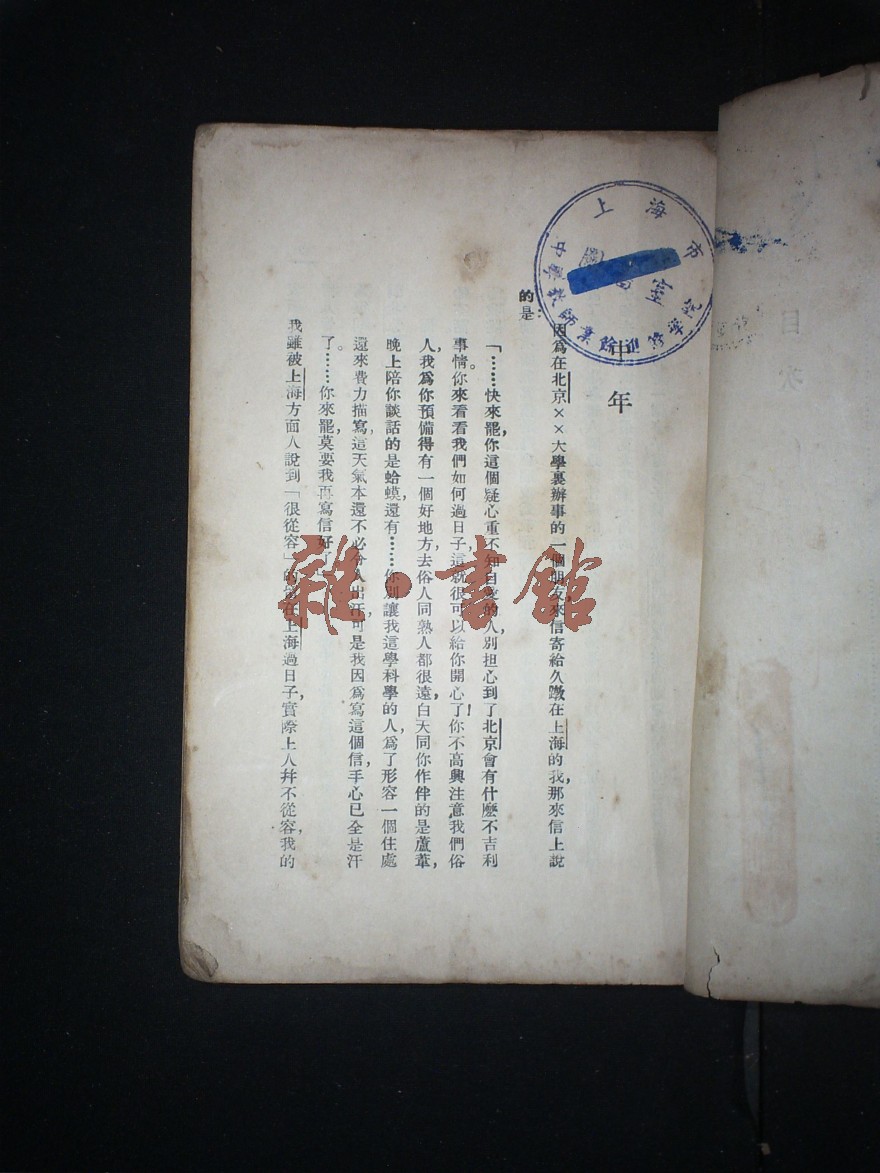 中年
因爲在北京××大學裏辦事的一個朋友,來信寄給久蹾在上海的我,那來信上說
的是:
「……快來罷,你這個疑心重不知自愛的人,別担心到了北京會有什麼不吉利
事情。你來看看我們如何過日子,這就很可以給你開心了!你不高興注意我們俗
人,我爲你預備得有一個好地方去,俗人同熟人都很遠,白天同你作伴的是蘆葦,
晚上陪你談話的是蛤蟆,還有……你別讓我這學科學的人,爲了形容一個住處
還來費力描寫,這天氣本還不必分人出汗,可是我因爲寫這個信,手心已全是汗
了。……你來罷,莫要我再寫信好了」
我雖被上海方面人說到「很從容」的在上海過日子,實際上人幷不從容,我的
上海市
中學教師業餘進修學院
圖書室
目次
雜·書館